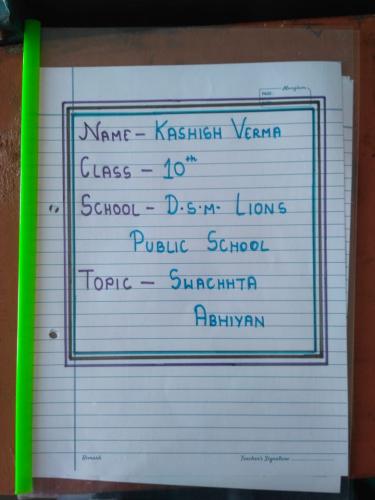 PAGE:
NAME - KASHISH VERMA
CLASS - 10th
SCHOOL - D.S.M. LIONS
PUBLIC SCHOOL
TOPIC - SWACHHTA
ABHIYAN
Remark
Teacher's Signature